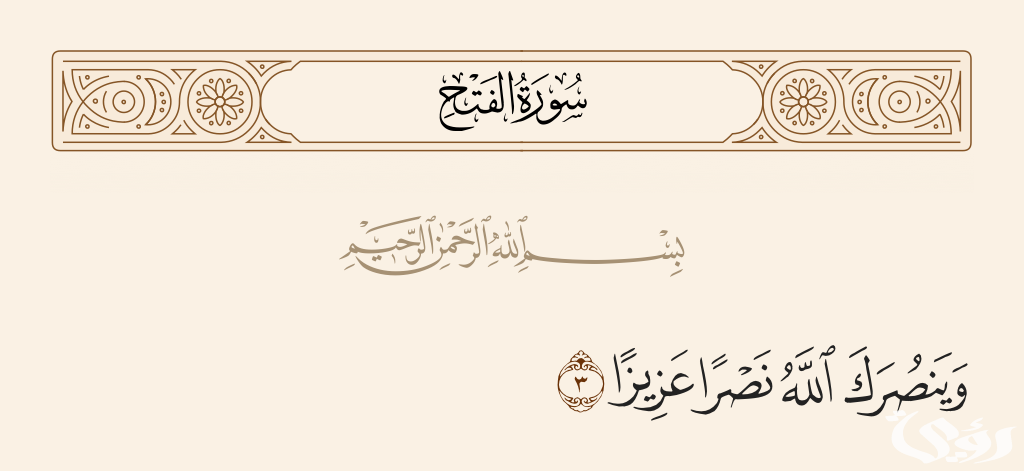 سُورَةُ الفَتْحِ
بِسْمِ ٱللَّهِ ٱلرَّحْمَٰنِ ٱلرَّحِيمِ
وَيَنصُرَكَ ٱللَّهُ نَصْرًا عَزِيزًا ٣
رؤى